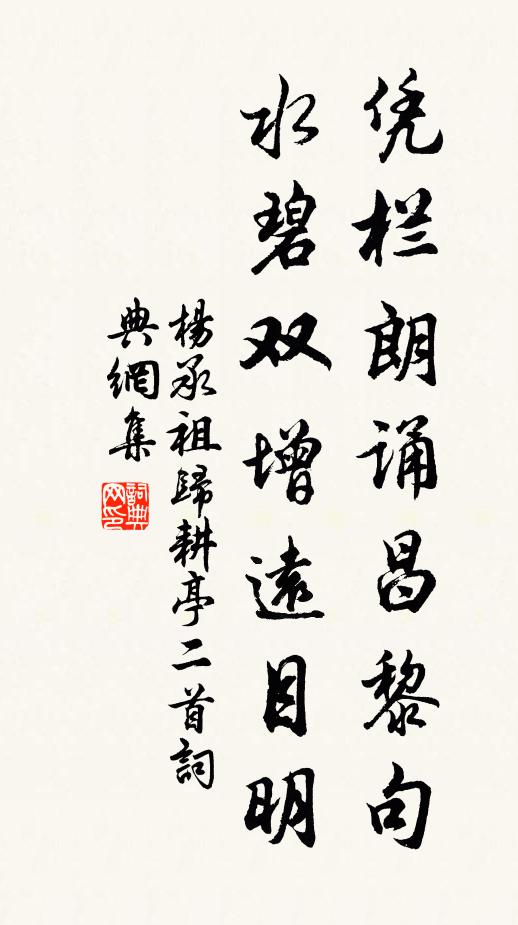 凭栏朗诵昌黎句
水碧双增遠目明
楊承祖歸耕亭二首詞
典網集
詞典
网印